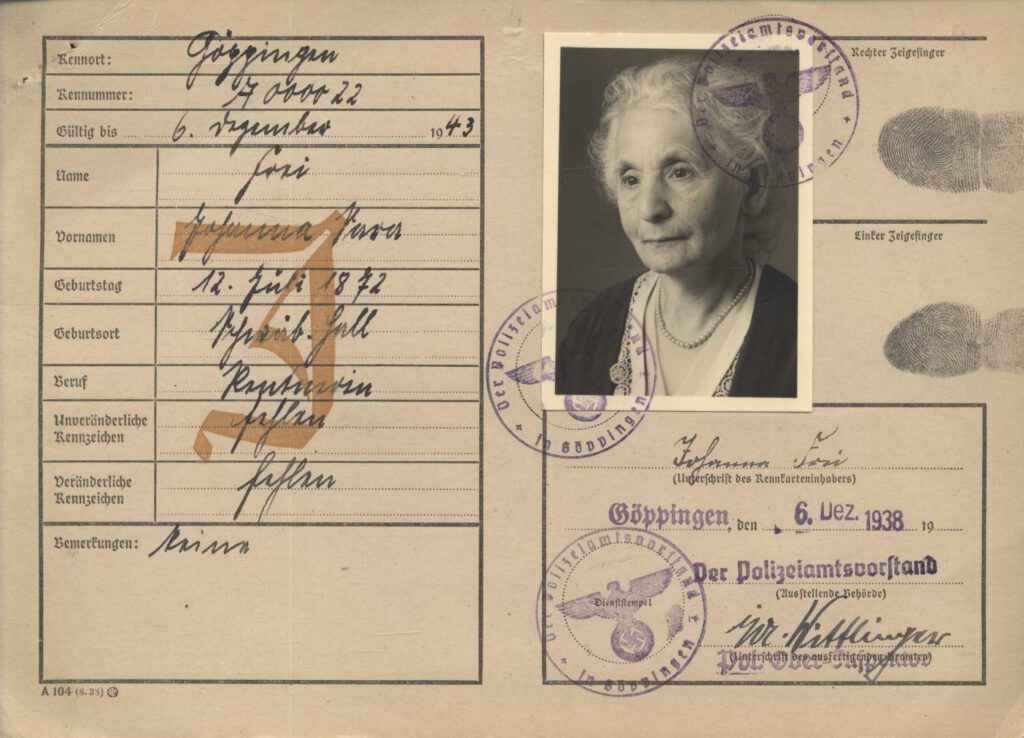 Kennort: Göppingen
Kennummer: A 0000 22
Gültig bis 6. Dezember 1943
Name Frei
Vornamen Johanna Sara
Geburtstag 12. Juli 1872
Geburtsort Schwäb. Hall
Beruf Rentnerin
Unveränderliche Kennzeichen fehlen
Veränderliche Kennzeichen fehlen
Bemerkungen: keine
J
A 104 (8.38)
Der Polizeiamtsvorstand
in Göppingen
Rechter Zeigefinger
Linker Zeigefinger
Der Polizeiamtsvorstand
in Göppingen
Johanna Frei
(Unterschrift des Kennkarteninhabers)
Göppingen, den 6. Dez. 1938 19
Der Polizeiamtsvorstand
(Ausstellende Behörde)
Der Polizeiamtsvorstand
in Göppingen
Dienststempel
(Unterschrift des ausfertigenden Beamten)